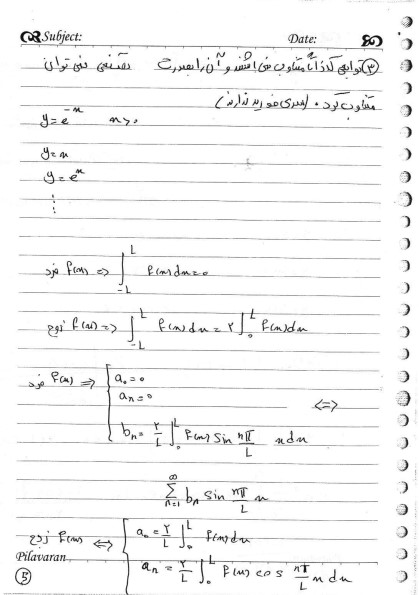 Subject: Date:
③ توابعی که ذاتاً متناوب نمی باشند و آن را بصورت نمی توان
متناوب کرد. (سری فوریه ندارند)
y=e^{-x} x>0
y=x
y=e^x
⋮
فرد f(x) => ∫_{-L}^{L} f(x)dx=0
زوج f(x) => ∫_{-L}^{L} f(x)dx = ۲∫_0^L f(x)dx
فرد f(x) => { a_0=0
a_n=0
<=>
b_n = ۲/L ∫_0^L f(x) sin nπ/L x dx
∑_{n=1}^{∞} b_n sin nπ/L x
زوج f(x) <=> { a_0 = ۲/L ∫_0^L f(x)dx
a_n = ۲/L ∫_0^L f(x) cos nπ/L x dx
Pilavaran
⑤